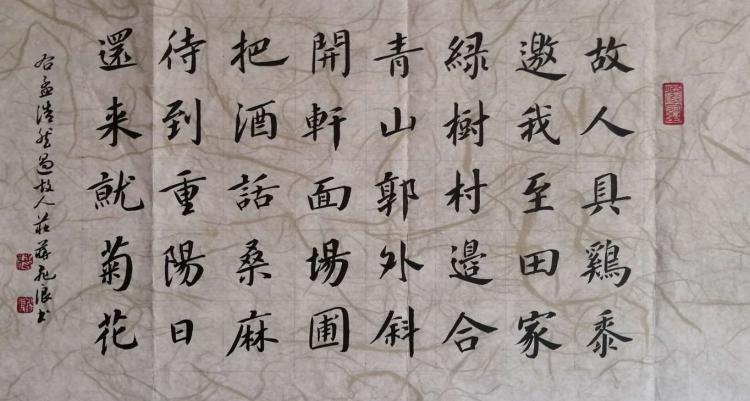 故人具鷄黍
邀我至田家
緑樹村邊合
青山郭外斜
開軒面場圃
把酒話桑麻
待到重陽日
還来就菊花
孟浩然過故人莊蔣书